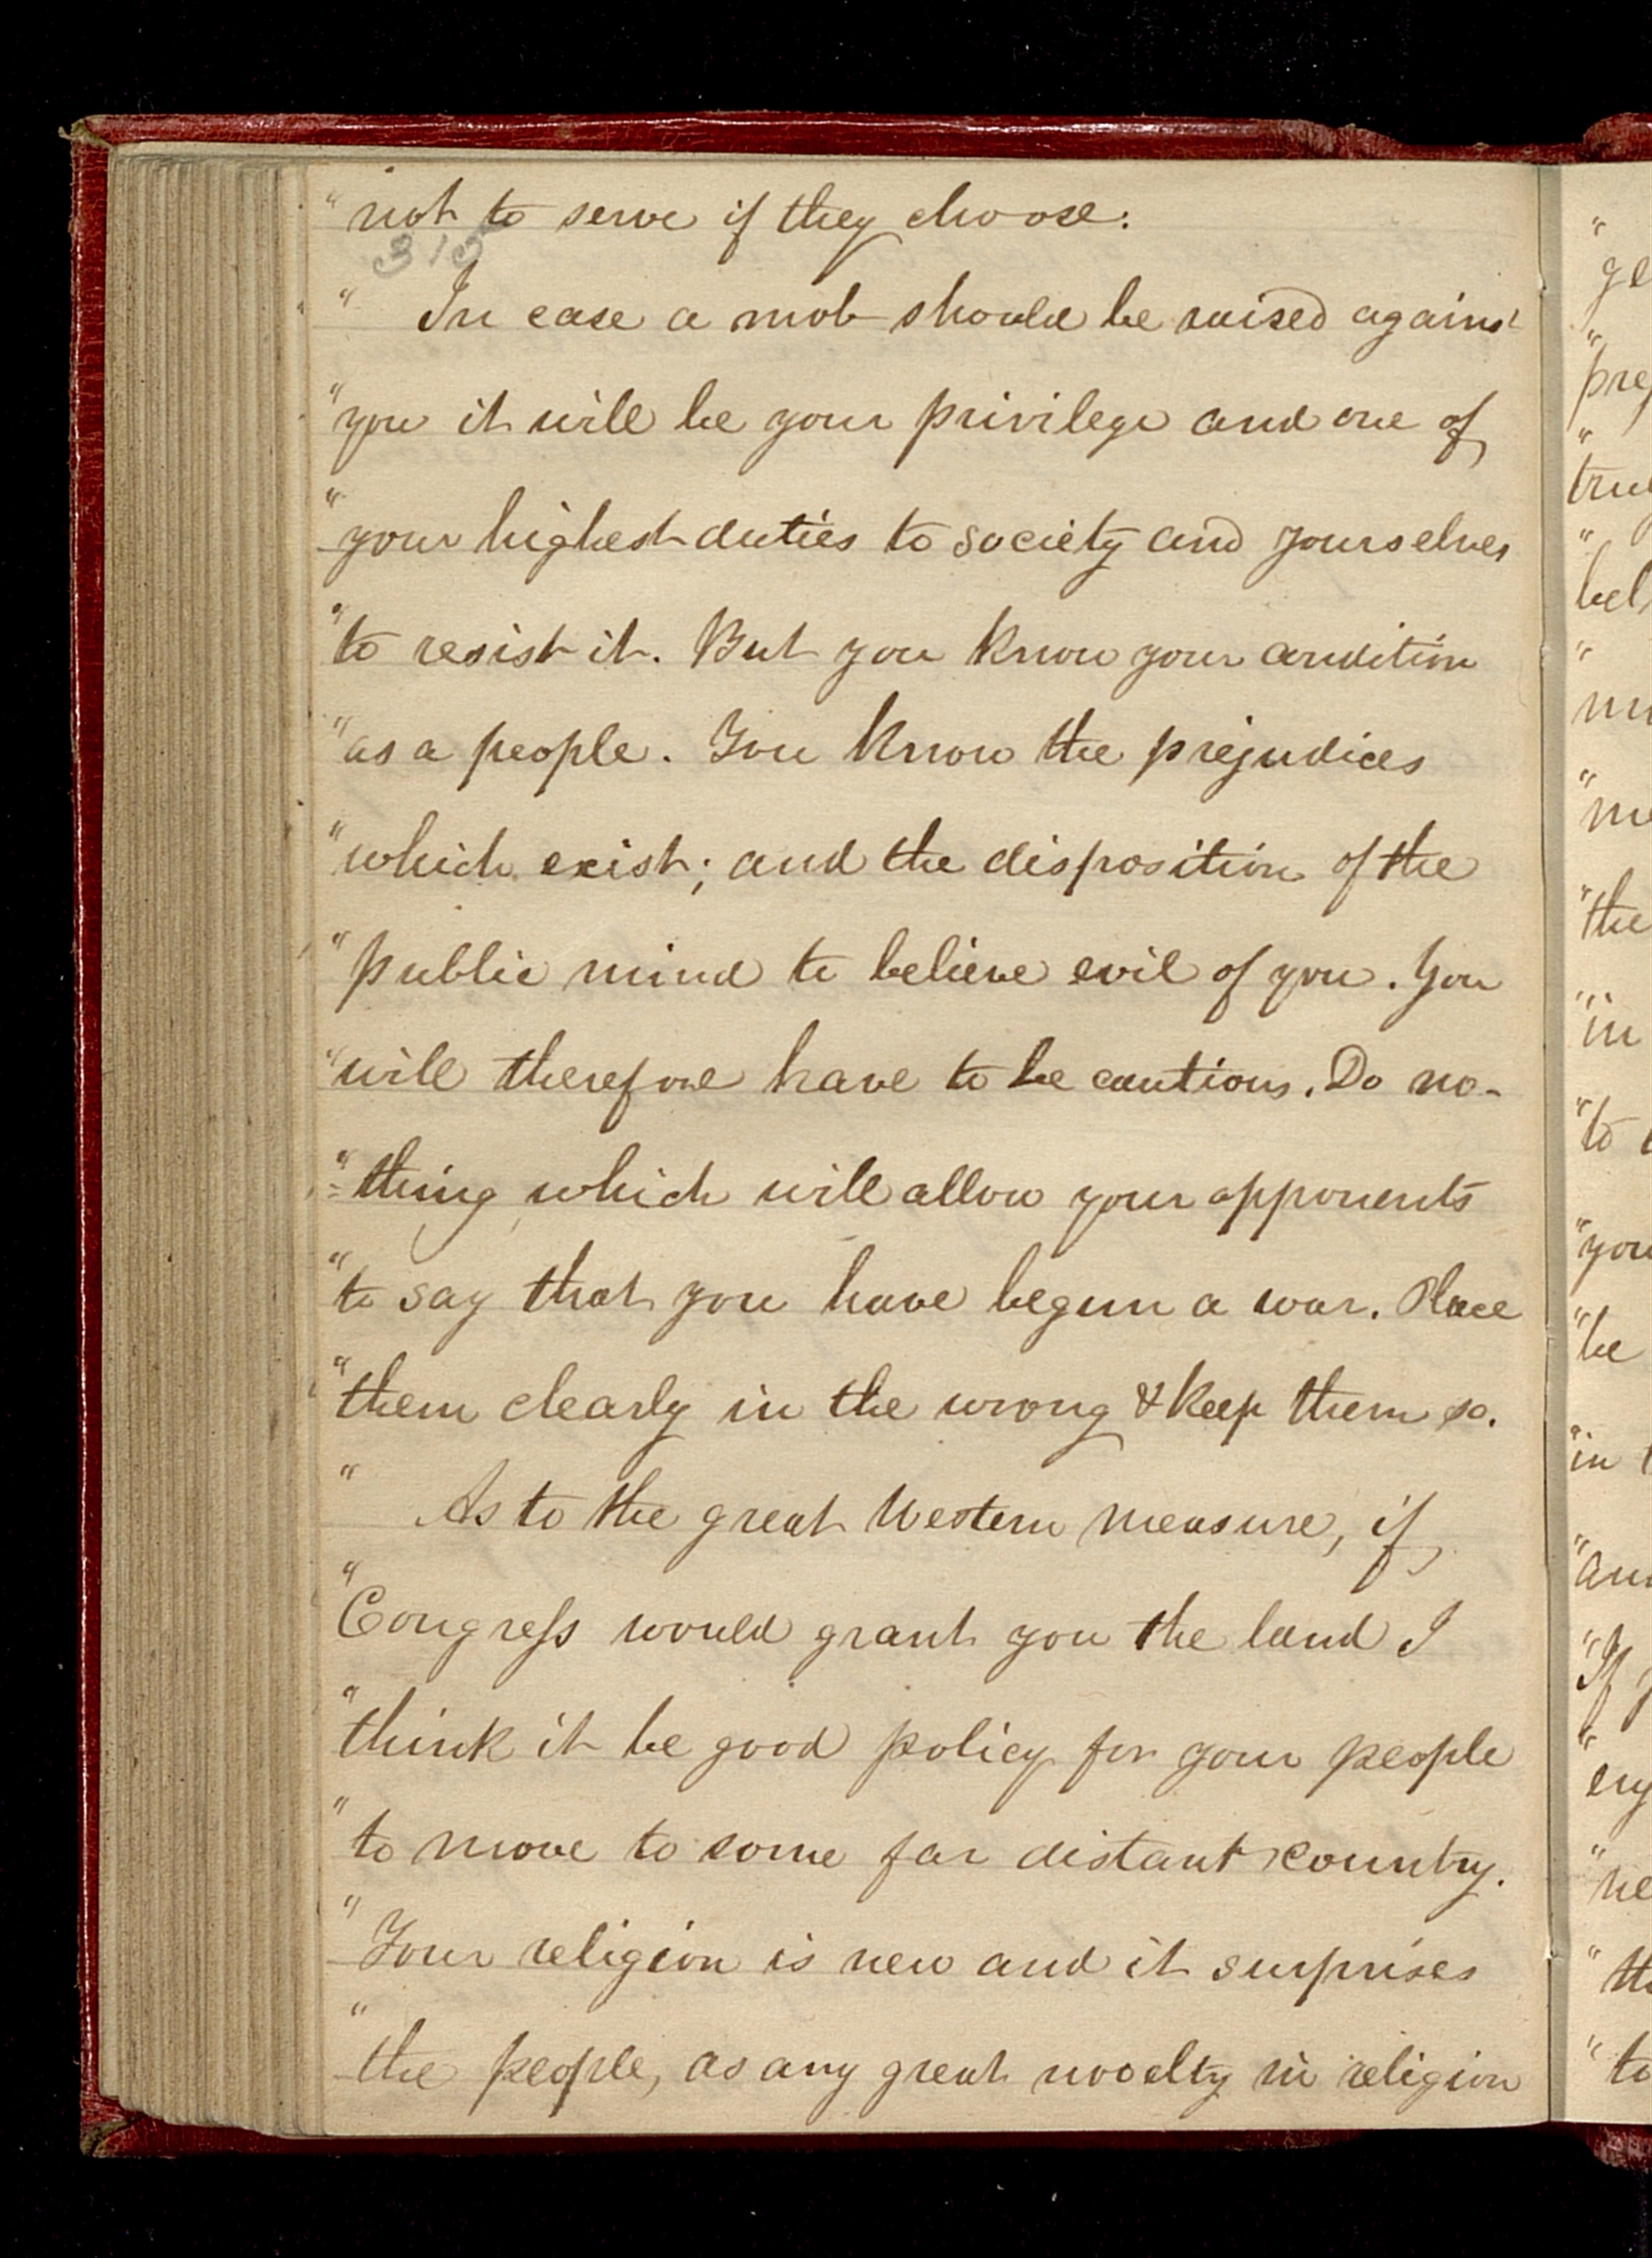 " not to serve if they choose.
315
" In case a mob should be raised against
" you it will be your privilege and one of
" your highest duties to society and yourselves
" to resist it. But you know your condition
" as a people. You know the prejudices
" which exist; and the disposition of the
" public mind to believe evil of you. You
" will therefore have to be cautious. Do no-
" =thing which will allow your opponents
" to say that you have begun a war. Place
" them clearly in the wrong & keep them so.
" As to the great Western measure, if
" Congress would grant you the land I
" think it be good policy for your people
" to move to some far distant country.
" Your religion is new and it surprises
" the people, as any great novelty in religion
"
ge
"
"
"
"
"
" the
" in
" to
" you
" be
" in
"
" If
"
"
" to